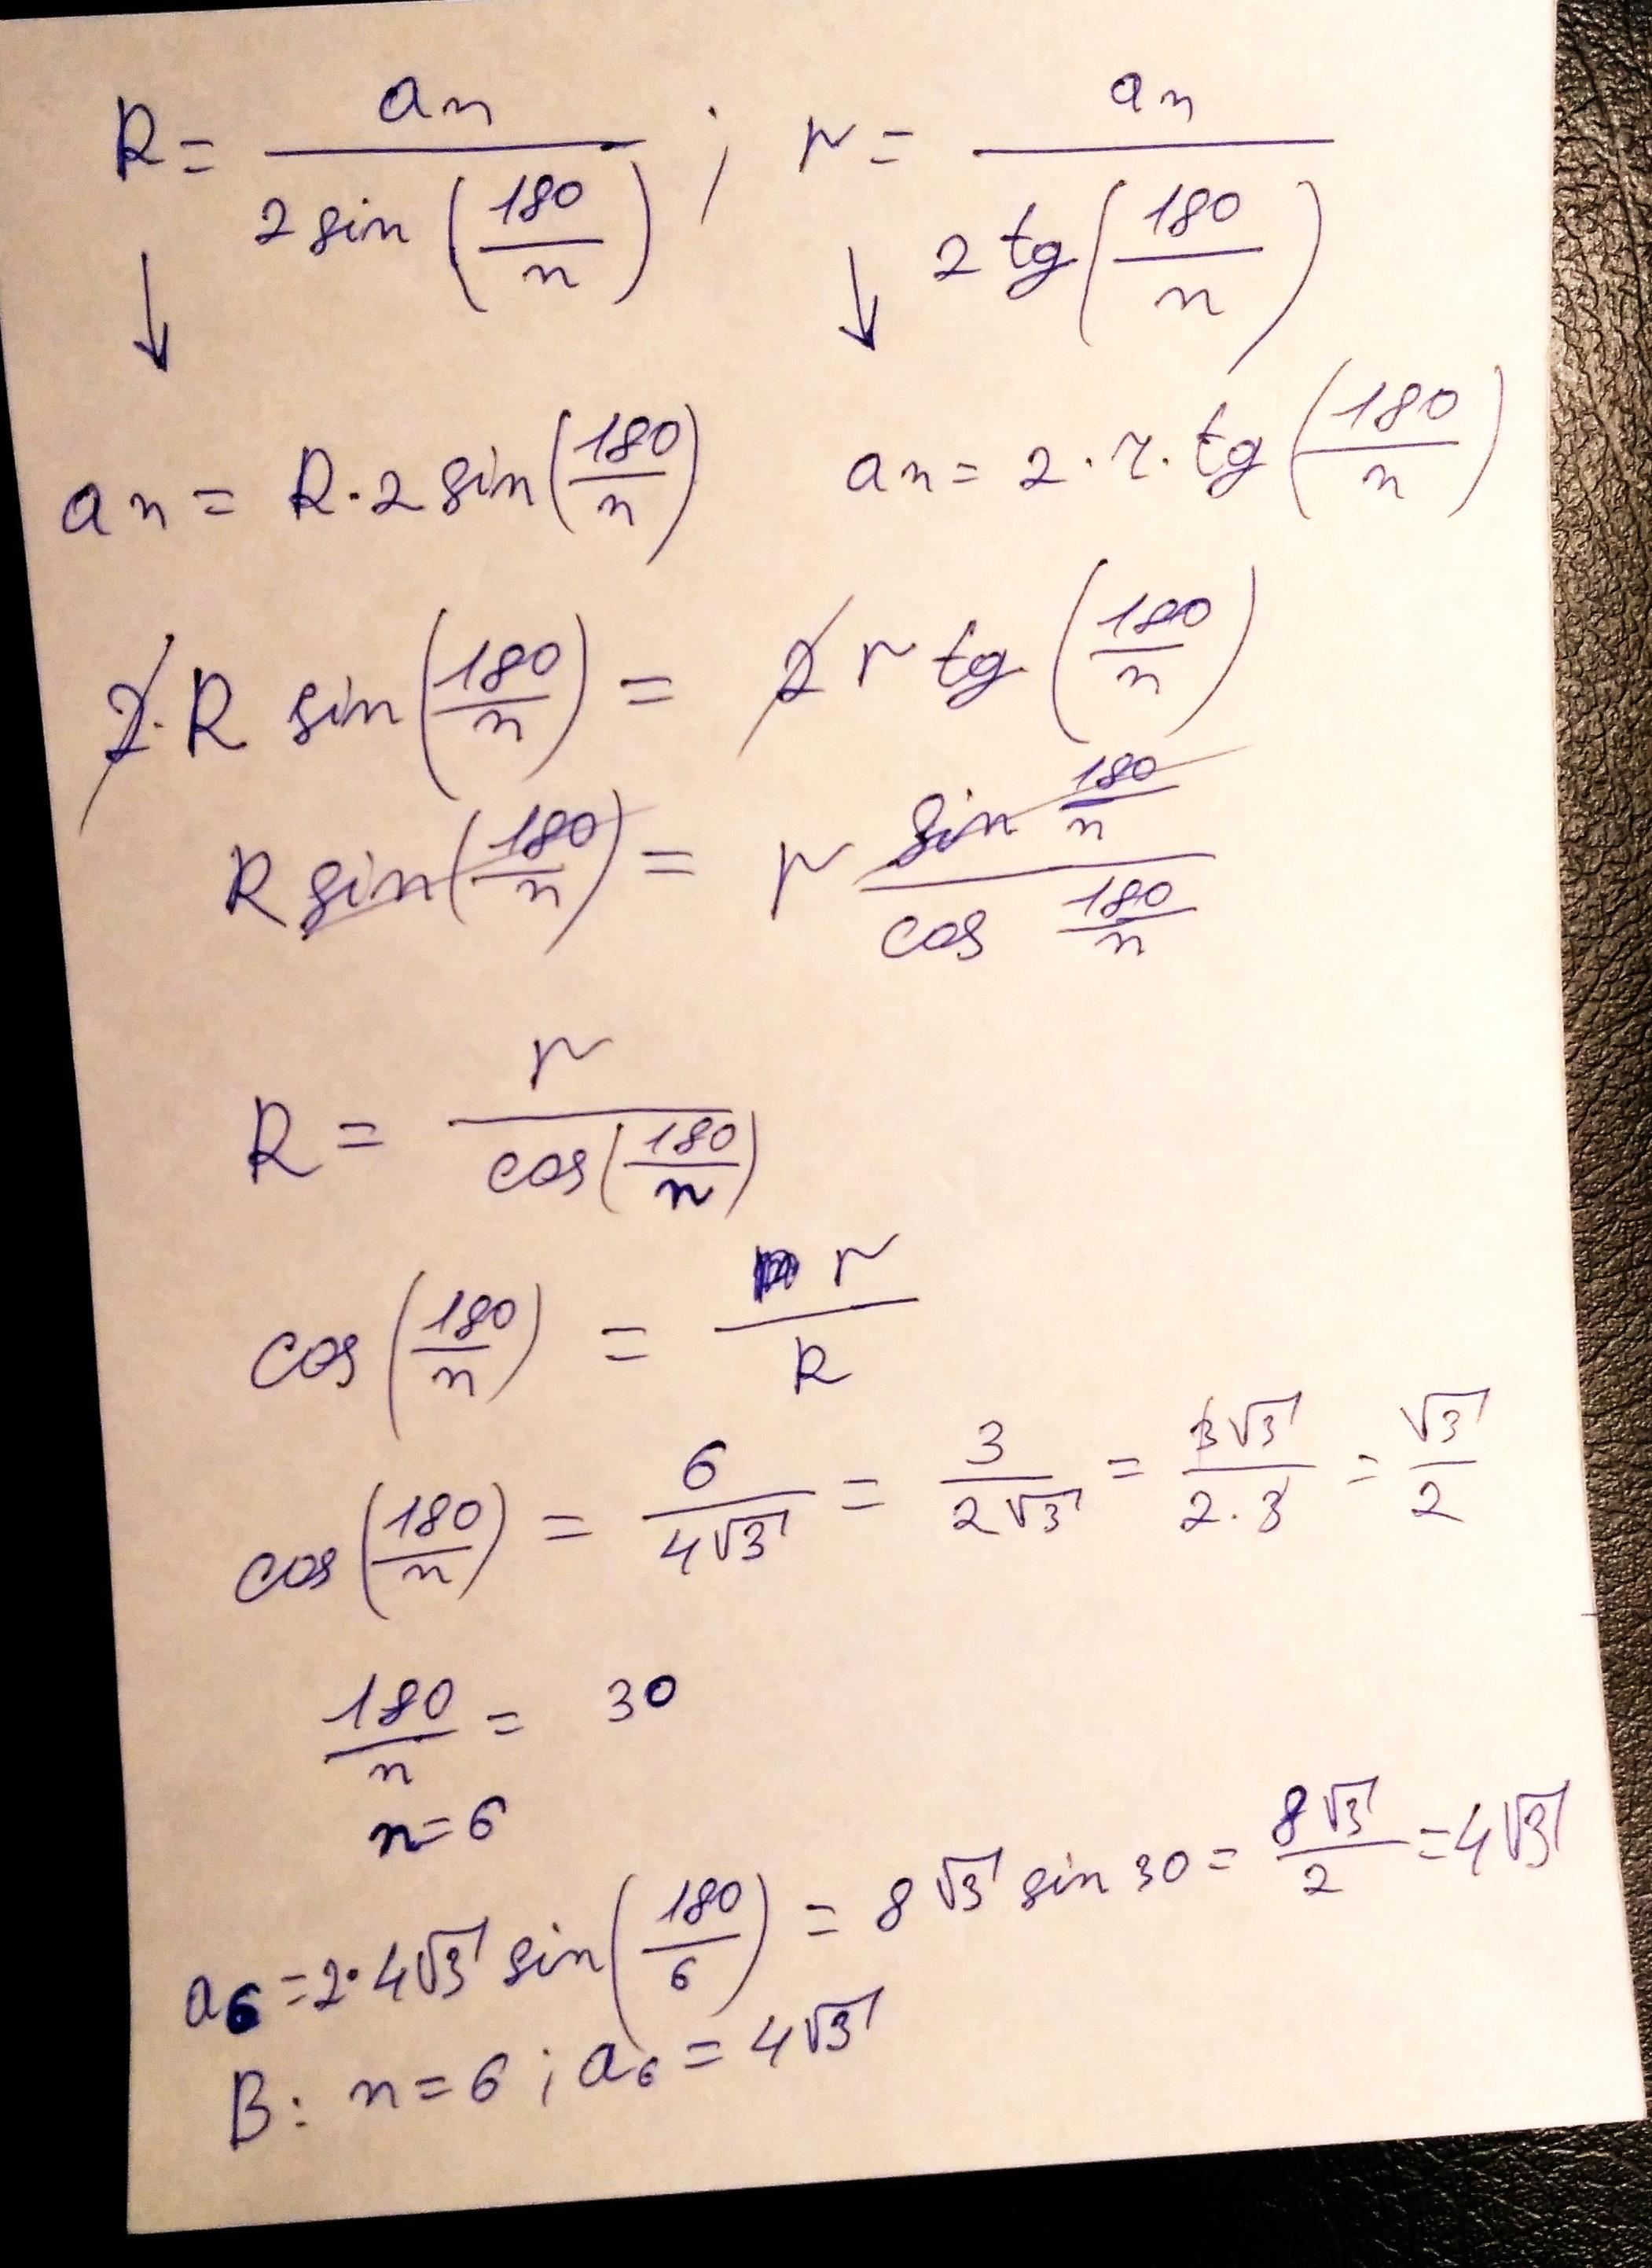 R = an / (2 sin (180/n)) ; r = an / (2 tg (180/n))
↓ ↓
an = R · 2 sin (180/n) an = 2 · r · tg (180/n)
2 · R sin (180/n) = 2 r tg (180/n)
R sin (180/n) = r (sin 180/n) / (cos 180/n)
R = r / cos (180/n)
cos (180/n) = r / R
cos (180/n) = 6 / 4√3 = 3 / 2√3 = 3√3 / 2·3 = √3 / 2
180/n = 30
n = 6
a6 = 2 · 4√3 sin (180/6) = 8√3 sin 30 = 8√3 / 2 = 4√3
B: n = 6 ; a6 = 4√3